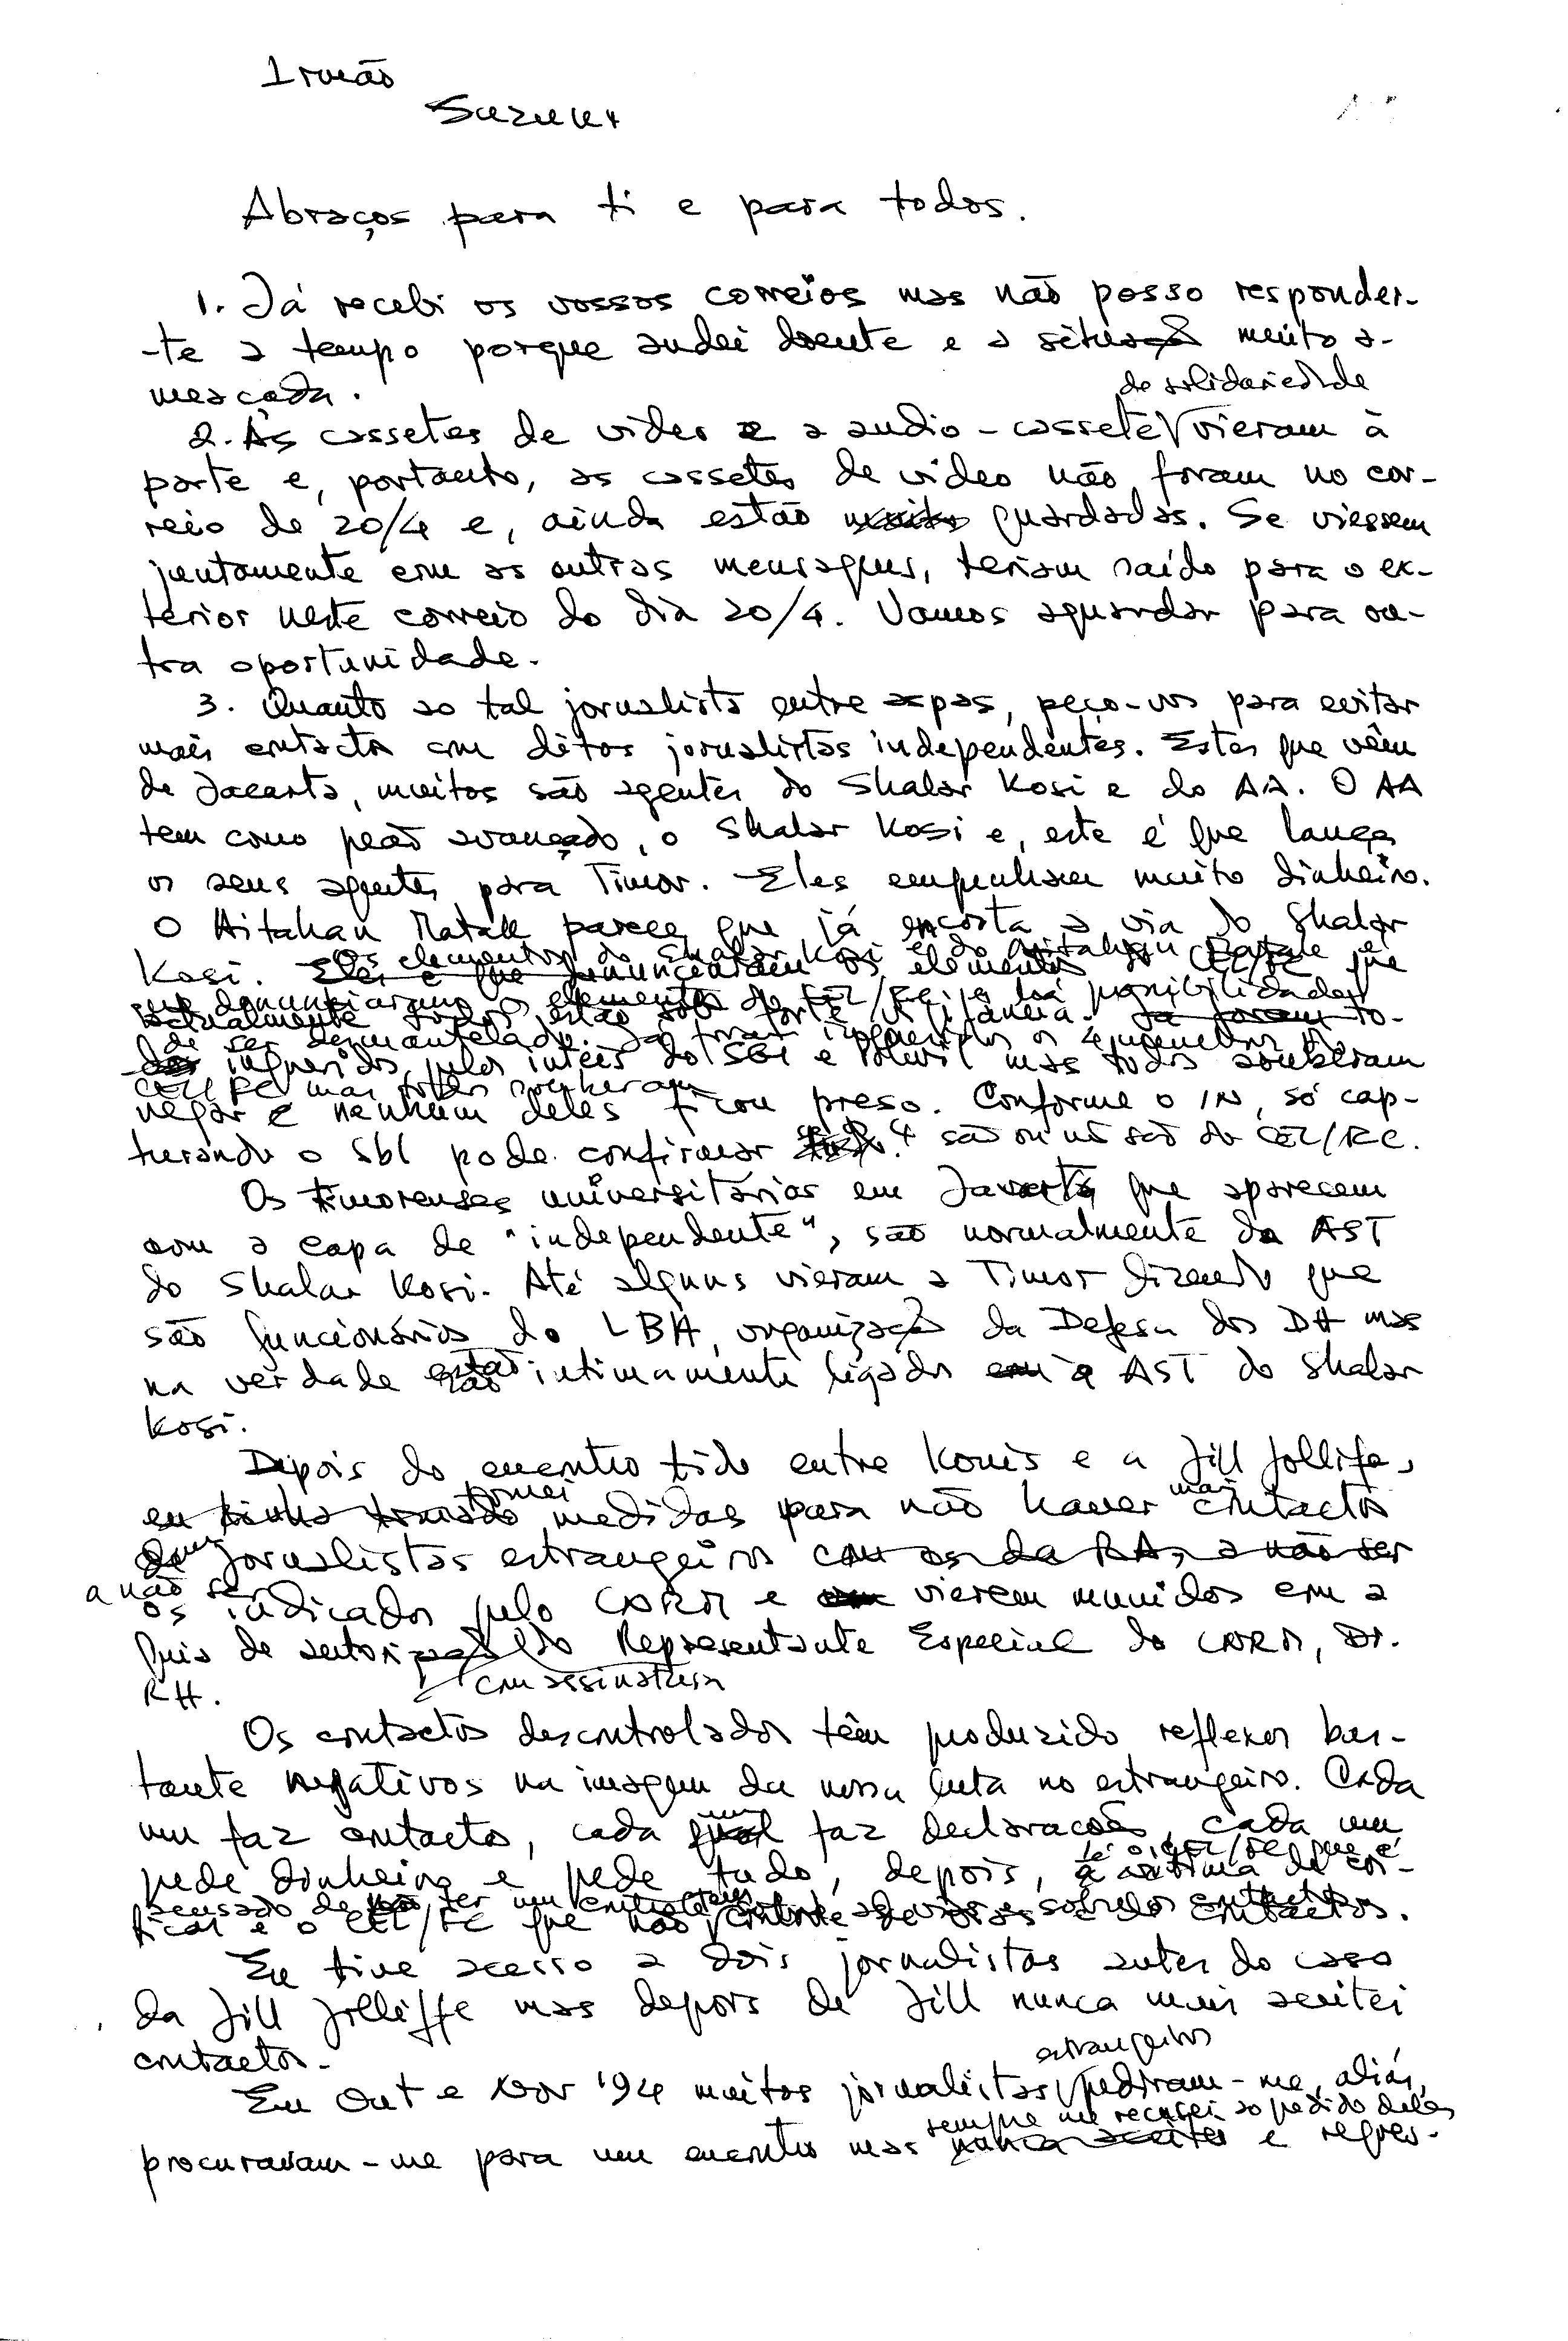 Irmão
Suzuki
Abraços para ti e para todos.
1. Já recebi os vossos correios mas não posso responder-
-te a tempo porque andei doente e a situação muito a-
meaçada.
de solidariedade
2. As cassetes de video e a audio-cassete vieram à
parte e, portanto, as cassetes de video não foram no cor-
reio de 20/4 e, ainda estão guardadas. Se viessem
juntamente com as outras mensagens, teriam saído para o ex-
terior neste correio do dia 20/4. Vamos aguardar para ou-
tra oportunidade.
3. Quanto ao tal jornalista entre aspas, peço-vos para evitar
mais contactos com ditos jornalistas independentes. Estes que vêm
de Jacarta, muitos são agentes do Shalar Kosi e do AA. O AA
tem como peão avançado, o Shalar Kosi e, este é que lança
os seus agentes para Timor. Eles empenham muito dinheiro.
O Aitahan Matak parece que já encosta a via do Shalar
Kosi. Os elementos do Shalar Kosi e do Aitahan Matak é
que denunciaram os elementos do CEL/FC e há possibilidades
de ser desmantelado. Já foram inqueridos os 4 membros do
CEL/FC mas todos souberam
negar e nenhum deles ficou preso. Conforme o IN, só cap-
turando o Sbl pode confirmar se os 4 são ou não são do CEL/FC.
Os timorenses universitários em Jacarta que aparecem
com a capa de "independente", são normalmente da AST
do Shalar Kosi. Até alguns vieram a Timor dizendo que
são funcionários do LBH, organização da Defesa dos DH mas
na verdade estão intimamente ligados a AST do Shalar
Kosi.
Depois do encontro tido entre Konis e a Jill Jollife,
tomei medidas para não haver mais contactos
com jornalistas estrangeiros
a não ser
os indicados pelo CNRM e vierem munidos com a
Guia de autorização do Representante Especial do CNRM, Dr.
RH.
com assinatura
Os contactos descontrolados têm produzido reflexos bas-
tante negativos na imagem da nossa luta no estrangeiro. Cada
um faz contacto, cada um faz declaracões, cada um
pede dinheiro e pede tudo, depois, é o CEL/FC que é
acusado de não ter um controle sobre os contactos.
Eu tive acesso a dois jornalistas antes do caso
da Jill Jolliffe mas depois de Jill nunca mais aceitei
contactos.
estrangeiros
Em Out e Nov '94 muitos jornalistas pediram-me, aliás,
sempre me recusei ao pedido deles
procuravam-me para um encontro mas e regres-